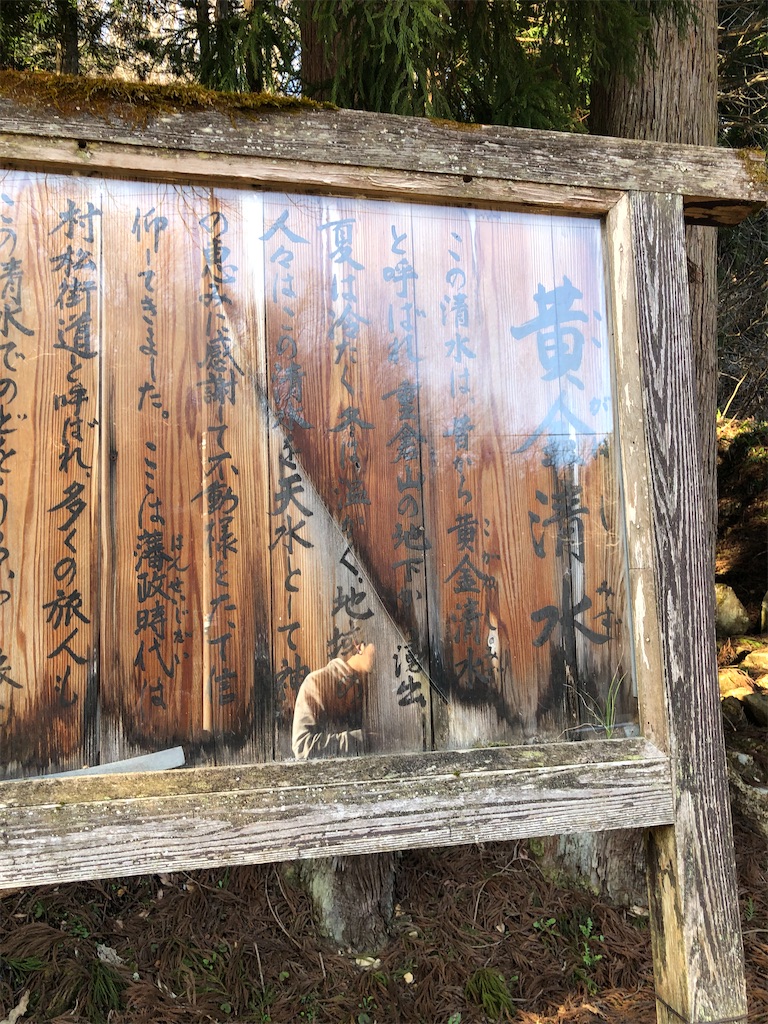 黄金清水
こがしみず
この清水は昔から黄金清水
と呼ばれ重倉山の地下から湧出
夏は冷たく冬は温かく、地域
人々はこの清水を天水として神
の恵みに感謝して不動様をたて信
仰してきました。ここは藩政時代は
はんせいじだい
村松街道と呼ばれ、多くの旅人も
この清水でのどをうる